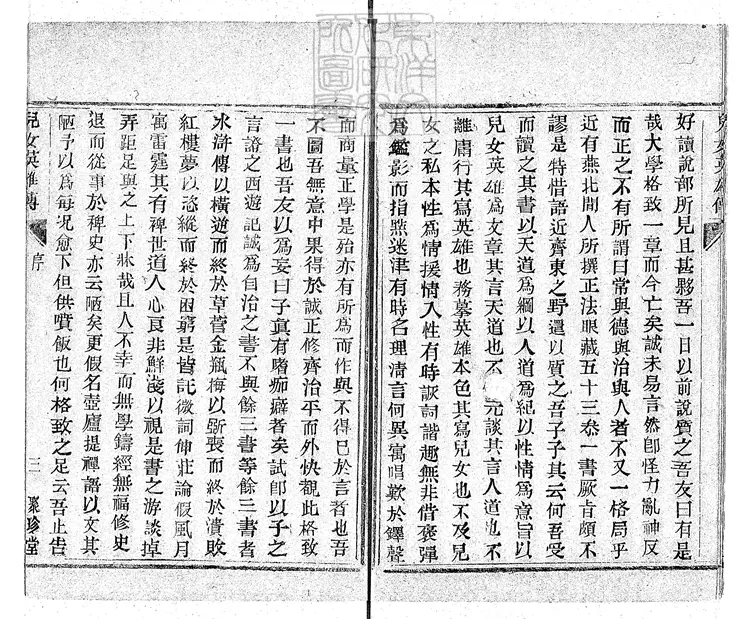 兒女英雄傳
好讀說部所見且甚夥吾一日以前說質之吾友曰有是
哉大學格致一章而今亡矣誠未易言然卽怪力亂神反
而正之不有所謂曰常與德與治與人者不又一格局乎
近有燕北閒人所撰正法眼藏五十三叅一書厥旨頗不
謬是特惜語近齊東之野還以質之吾子子其云何吾受
而讀之其書以天道爲綱以人道爲紀以性情爲意旨以
兒女英雄爲文章其言天道也不元談其言人道也不
離庸行其寫英雄也務摹英雄本色其寫兒女也不及兒
女之私本性爲情援情入性有時詼詞諧趣無非借褒彈
爲鑑影而指㸃迷津有時名理淸言何異寓唱歎於鐸聲
而商量正學是殆亦有所爲而作與不得已於言者也吾
不圖吾無意中果得於誠正修齊治平而外快觀此格致
一書也吾友以爲妄曰子眞有嗜痂癖者矣試卽以子之
言證之西遊記誠爲自治之書不與餘三書等餘三書者
水滸傳以橫遊而終於草菅金瓶梅以斲喪而終於潰敗
紅樓夢以恣縱而終於困窮是皆託微詞伸莊論假風月
寓雷霆其有裨世道人心良非鮮淺以視是書之游談掉
弄距足與之上下牀哉且人不幸而無學鑄經無福修史
退而從事於稗史亦云陋矣更假名壺廬提禪語以文其
陋予以爲每况愈下但供噴飯也何格致之足云吾止告
兒女英雄傳
序
三
聚珍堂